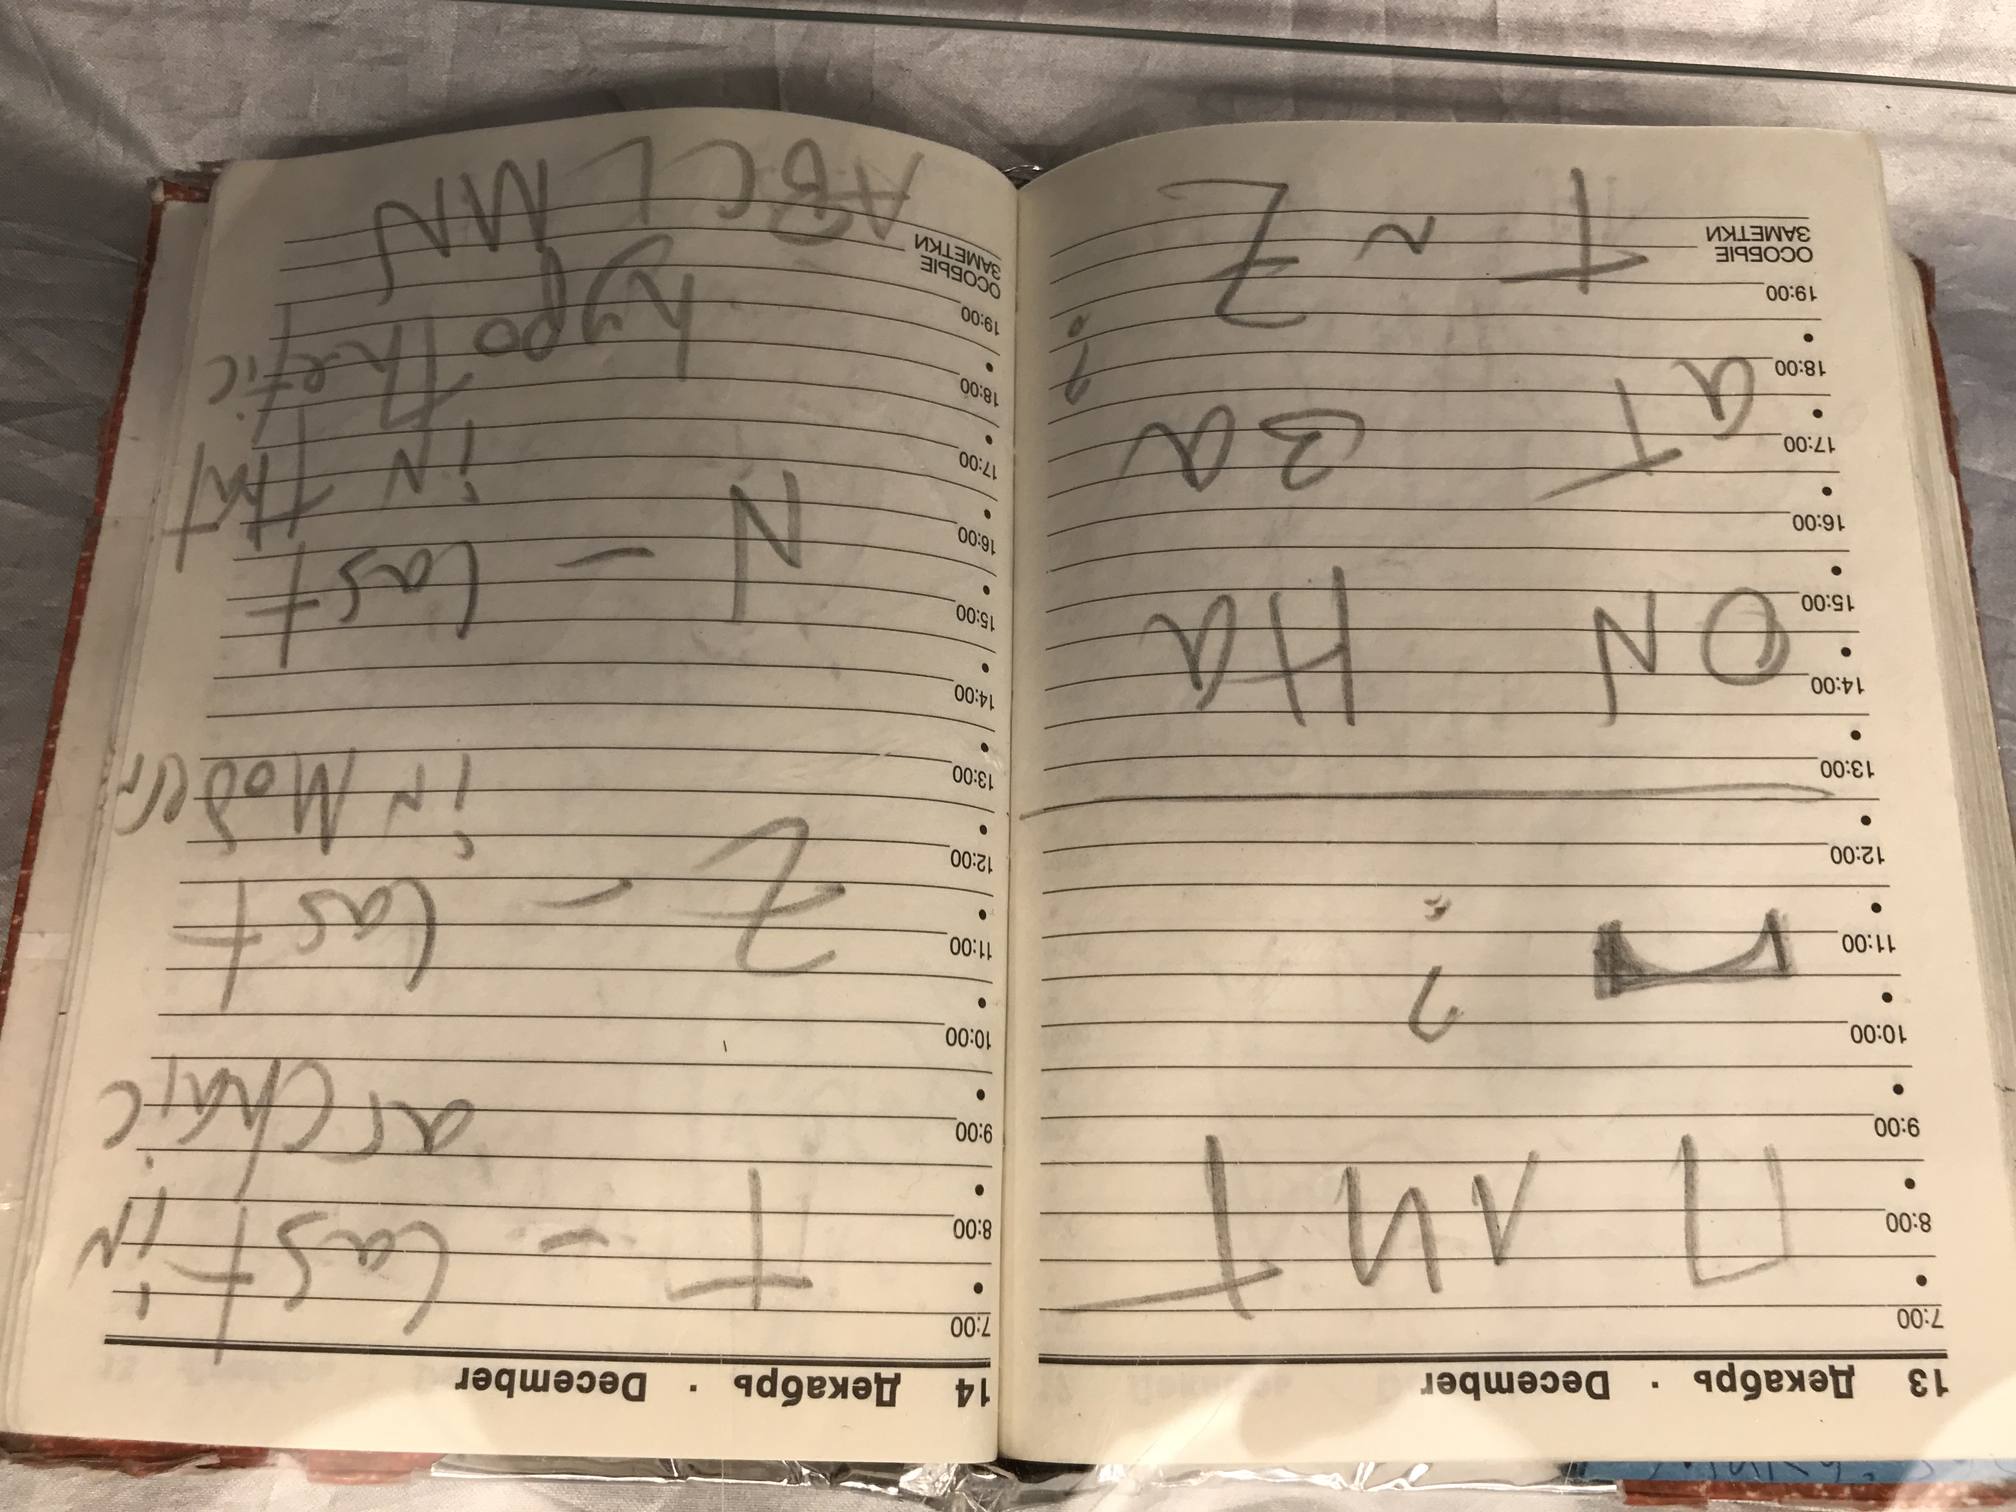 13 Декабрь · December
7:00
8:00
9:00
10:00
11:00
12:00
13:00
14:00
15:00
16:00
17:00
18:00
19:00
ОСОБЫЕ
ЗАМЕТКИ
?
ON На
aT За ?
T ~ Z
14 Декабрь · December
7:00
8:00
9:00
10:00
11:00
12:00
13:00
14:00
15:00
16:00
17:00
18:00
19:00
ОСОБЫЕ
ЗАМЕТКИ
T - Last in
archaic
Z - Last
in Modern
N - Last
in that
hypothetic
ABCLMN